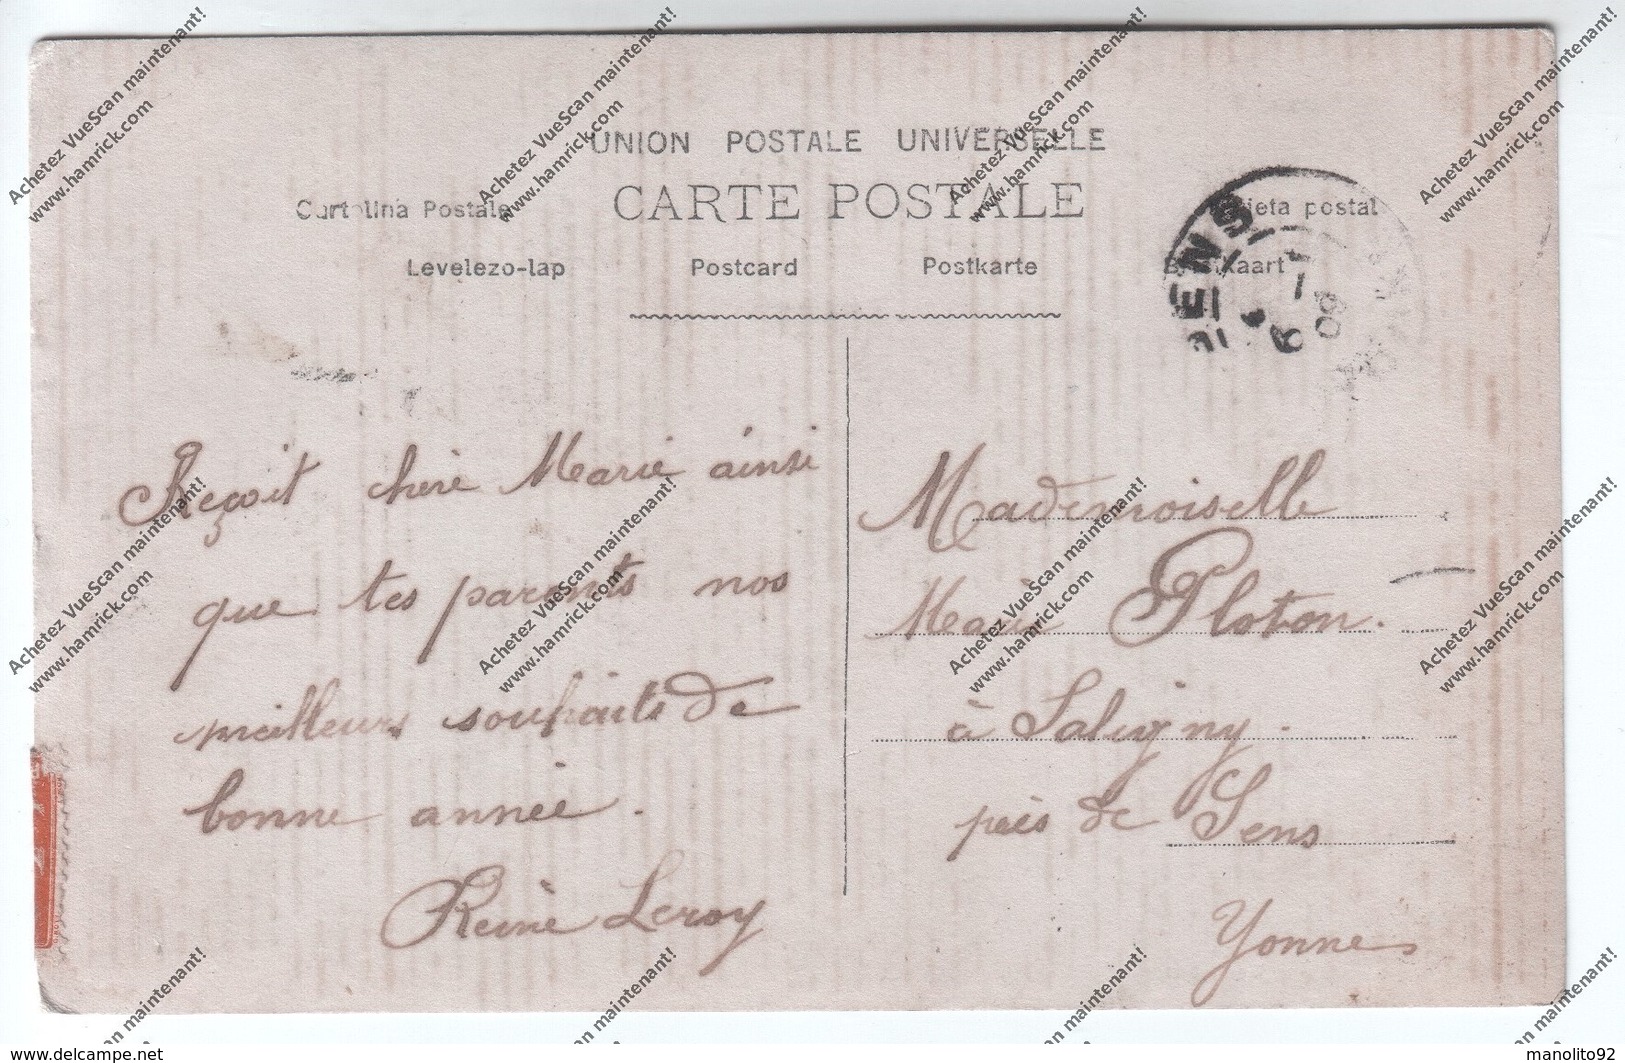 UNION POSTALE UNIVERSELLE
CARTE POSTALE
Cartolina Postale
Levelezo-lap
Postcard
Postkarte
postal
SENS
09
Reçoit chère Marie ainsi
que tes parents nos
meilleurs souhaits de
bonne année.
Reine Leroy
Mademoiselle
Marie Ploton.
à Saligny.
près de Sens
Yonne
Achetez VueScan maintenant!
www.hamrick.com
www.delcampe.net
manolito92